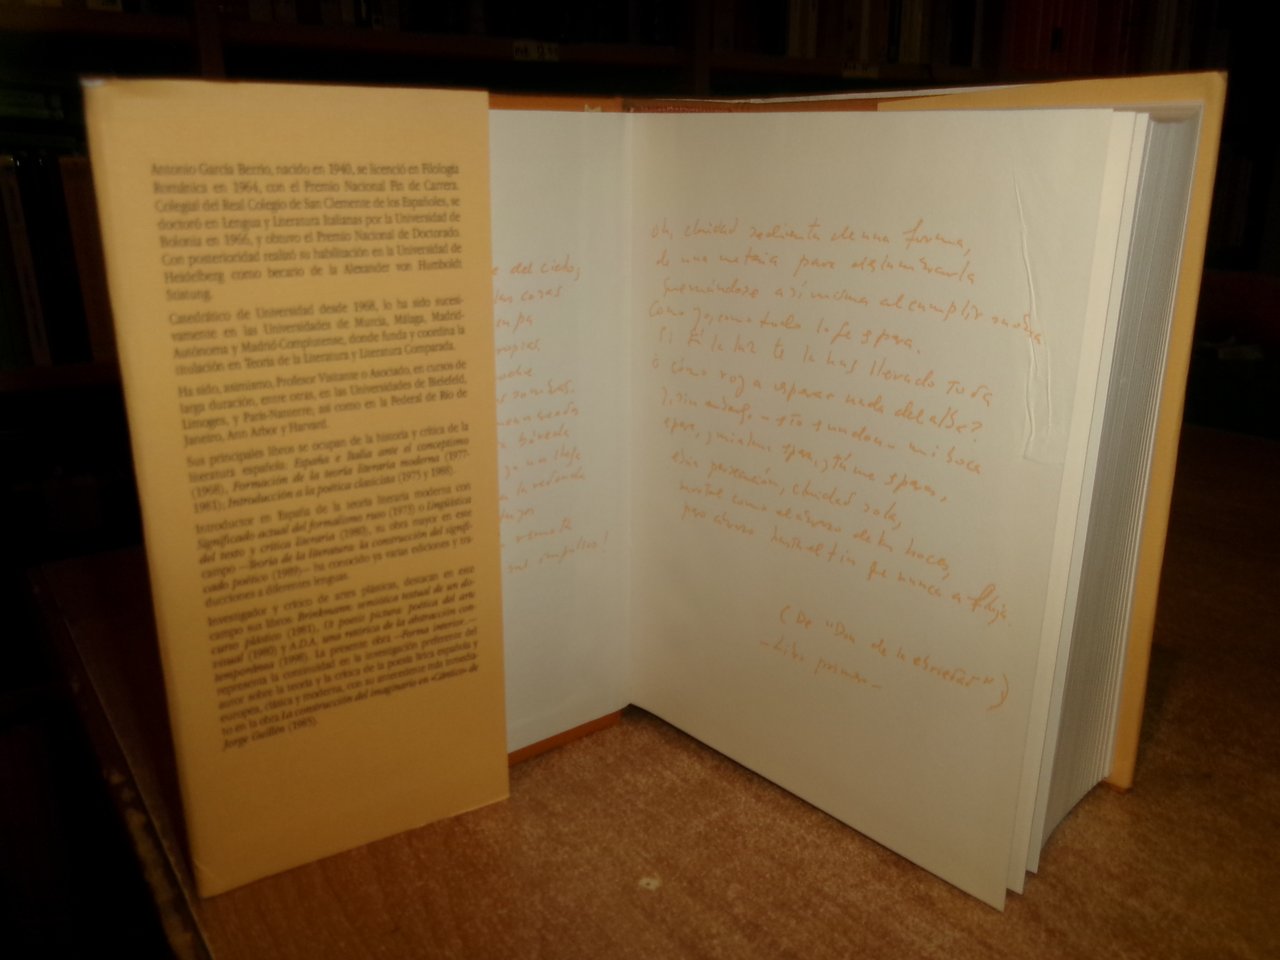 Antonio García Berrio, nacido en 1940, se licenció en Filología
Románica en 1964, con el Premio Nacional Fin de Carrera.
Colegial del Real Colegio de San Clemente de los Españoles, se
doctoró en Lengua y Literatura Italianas por la Universidad de
Bolonia en 1966, y obtuvo el Premio Nacional de Doctorado.
Con posterioridad realizó su habilitación en la Universidad de
Heidelberg como becario de la Alexander von Humboldt
Stiftung.
Catedrático de Universidad desde 1968, lo ha sido sucesi-
vamente en las Universidades de Murcia, Málaga, Madrid-
Autónoma y Madrid-Complutense, donde funda y coordina la
titulación en Teoría de la Literatura y Literatura Comparada.
Ha sido, asimismo, Profesor Visitante o Asociado, en cursos de
larga duración, entre otras, en las Universidades de Bielefeld,
Limoges, y París-Nanterre; así como en la Federal de Río de
Janeiro, Ann Arbor y Harvard.
Sus principales libros se ocupan de la historia y crítica de la
literatura española: España e Italia ante el conceptismo
(1968), Formación de la teoría literaria moderna (1977-
1981), Introducción a la poética clasicista (1975 y 1988).
Introductor en España de la teoría literaria moderna con
Significado actual del formalismo ruso (1973) o Lingüística
del texto y crítica literaria (1980), su obra mayor en este
campo —Teoría de la literatura: la construcción del signifi-
cado poético (1989)— ha conocido ya varias ediciones y tra-
ducciones a diferentes lenguas.
Investigador y crítico de artes plásticas, destacan en este
campo sus libros: Brinkmann: semiótica textual de un dis-
curso plástico (1981), Ut poesis pictura: poética del arte
visual (1980) y A.D.A. una retórica de la abstracción con-
temporánea (1998). La presente obra —Forma interior—
representa la continuidad en la investigación preferente del
autor sobre la teoría y la crítica de la poesía lírica española y
europea, clásica y moderna, con su antecedente más inmedia-
to en la obra La construcción del imaginario en «Cántico» de
Jorge Guillén (1985).
del cielo,
las cosas
sombras.
bóveda
la redonda
remota
sus impulsos!
oh, claridad sedienta de una forma,
de una materia para deslumbrarla
quemándose a sí misma al cumplir su obra.
Como yo, como todo lo que espera.
Si tú la luz te la has llevado toda
¿cómo voy a esperar nada del alba?
Y, sin embargo —esto es un don— mi boca
espera, y mi alma espera, y tú me esperas,
ebria persecución, claridad sola,
mortal como el abrazo de las hoces,
pero abrazo hasta el fin que nunca afloja.
(De "Don de la ebriedad")
—Libro primero—